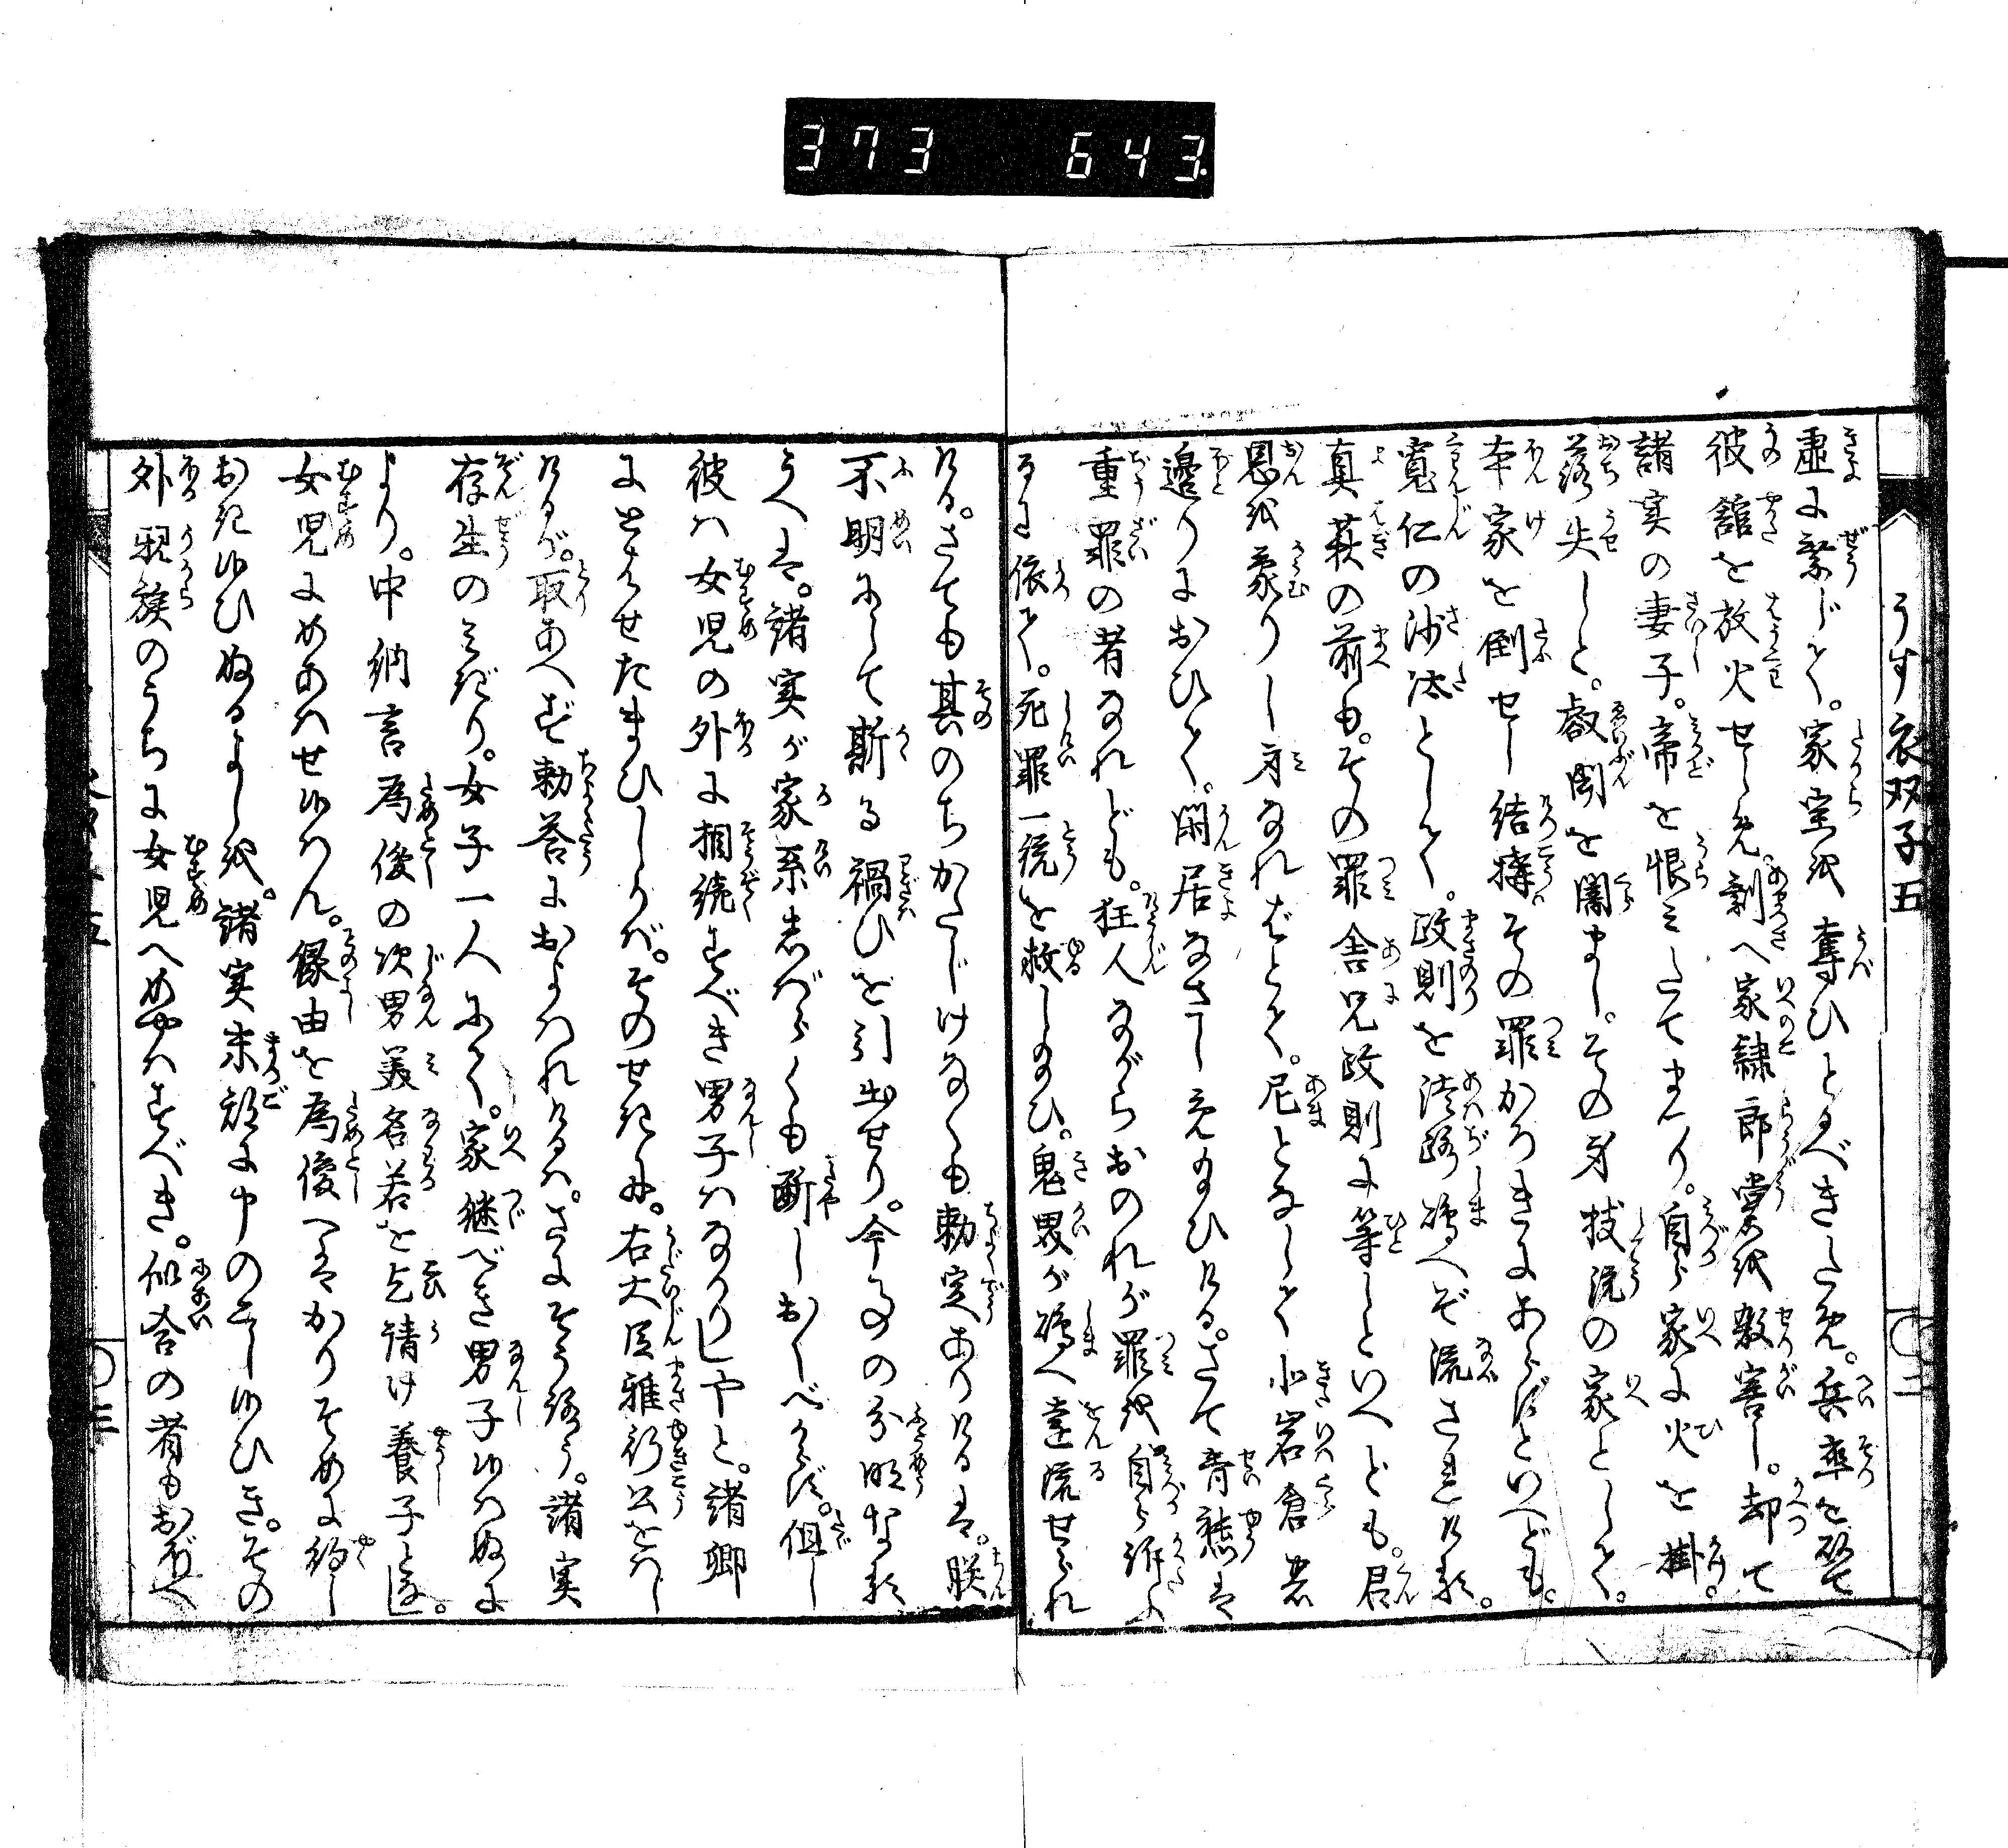 373 643
うす衣双子五
〇二
虚に繋じて。家宝を奪ひとるべきため。兵率を似て
彼舘を放火せしめ。剰へ家隷郎党を殺害し。却て
諸実の妻子。帝を恨みたてまつり。自ら家に火を掛。
落失しと。叡聞を闇まし。その身技流の家として。
本家を倒せし結構。その罪かろきにあらずといへども。
寛仁の沙汰として。政則を淡路嶋へぞ流されける。
真萩の前も。その罪舎兄政則に等しといへども。君
恩を蒙りし身なればとて。尼となして北岩倉の
邊りにおひて。閑居なさしめ給ひける。さて青
重罪の者なれども。狂人ながらおのれが罪を自ら訴ふ
るに依て。死罪一統を赦し給ひ。鬼界が嶋へ遠流せられ
ける。さても其のちかたじけなくも勅定ありけるは。朕
不明にして斯る禍ひを引出せり。今の分明なる
うへは。諸実が家系しばらくも断しおくべからず。但し
彼は女児の外に相続すべき男子はなかりしやと。諸卿
にとはせたまひしかば。そのせきに。右大臣雅行公をはじ
けるが。取あへず勅答におよばれけるは。さにそうろう。諸実
存生のみぎり。女子一人にて。家継べき男子候はぬに
より。中納言為俊の次男美名若を乞請け養子となし。
女児にめあはせ候はん。縁由を為俊へはかりそめに約し
おき候ひぬるよしを。諸実末期に申のこし候ひき。その
外親族のうちに女児へめあはすべき。似合の者もおぼへ
〇三